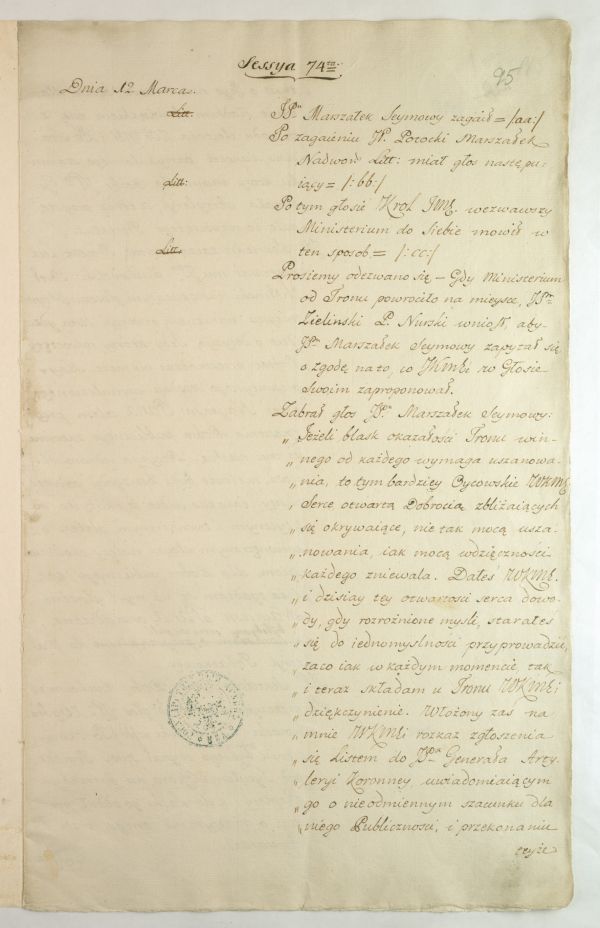 Sessya 74ta.
95
Dnia 12 Marca.
Litt.
JPn Marszałek Seymowy zagaił = /:aa:/
Po zagaieniu W. Potocki Marszałek
Nadwor: Litt: miał głos nastę pu-
Litt:
iący = /:bb:/
Po tym głosie Krol JMć. wezwawszy
Ministerium do Siebie mowił w
Litt.
ten sposob = /:cc:/
Prosiemy odezwano się – Gdy Ministerium
od Tronu powrociło na mieysce, JPn
Zielinski P. Nurski wniosł, aby
JPn Marszałek Seymowy zapytał się
o zgodę na to, co JKMć w Głosie
Swoim zaproponował.
Zabrał głos JPn Marszałek Seymowy:
„ Jeżeli blask okazałości Tronu win-
„ nego od każdego wymaga uszanowa-
„ nia, to tym bardziey Oycowskie WKMć
„ Serce otwartą Dobrocią zbliżaiących
„ się okrywaiące, nie tak mocą usza-
„ nowania, iak mocą wdzięczności
„ każdego zniewala. Dałeś WKMć.
„ i dzisiay tey otwartości serca dowo-
„ dy, gdy rozrożnione mysli, starałeś
„ się do iednomyslności przyprowadzić,
„ za co iak w każdym momencie, tak
„ i teraz składam u Tronu WKMći
„ dziękczynienie. Włożony zaś na
„ mnie WKMći rozkaz zgłoszenia
„ się Listem do JPa Generała Arty-
„ leryi Koronney, uwiadomiaiącym
„ go o nieodmiennym szacunku dla
„ niego Publiczności, i przekonaniu